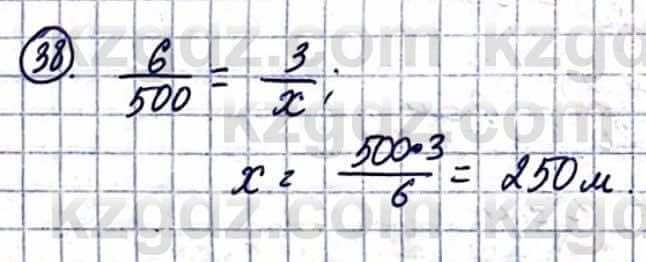 kzgdz.com kzgdz.com
38. 6/500 = 3/x;
kzgdz.com
x = 500•3/6 = 250 м.
kzgdz.com kzgdz.com